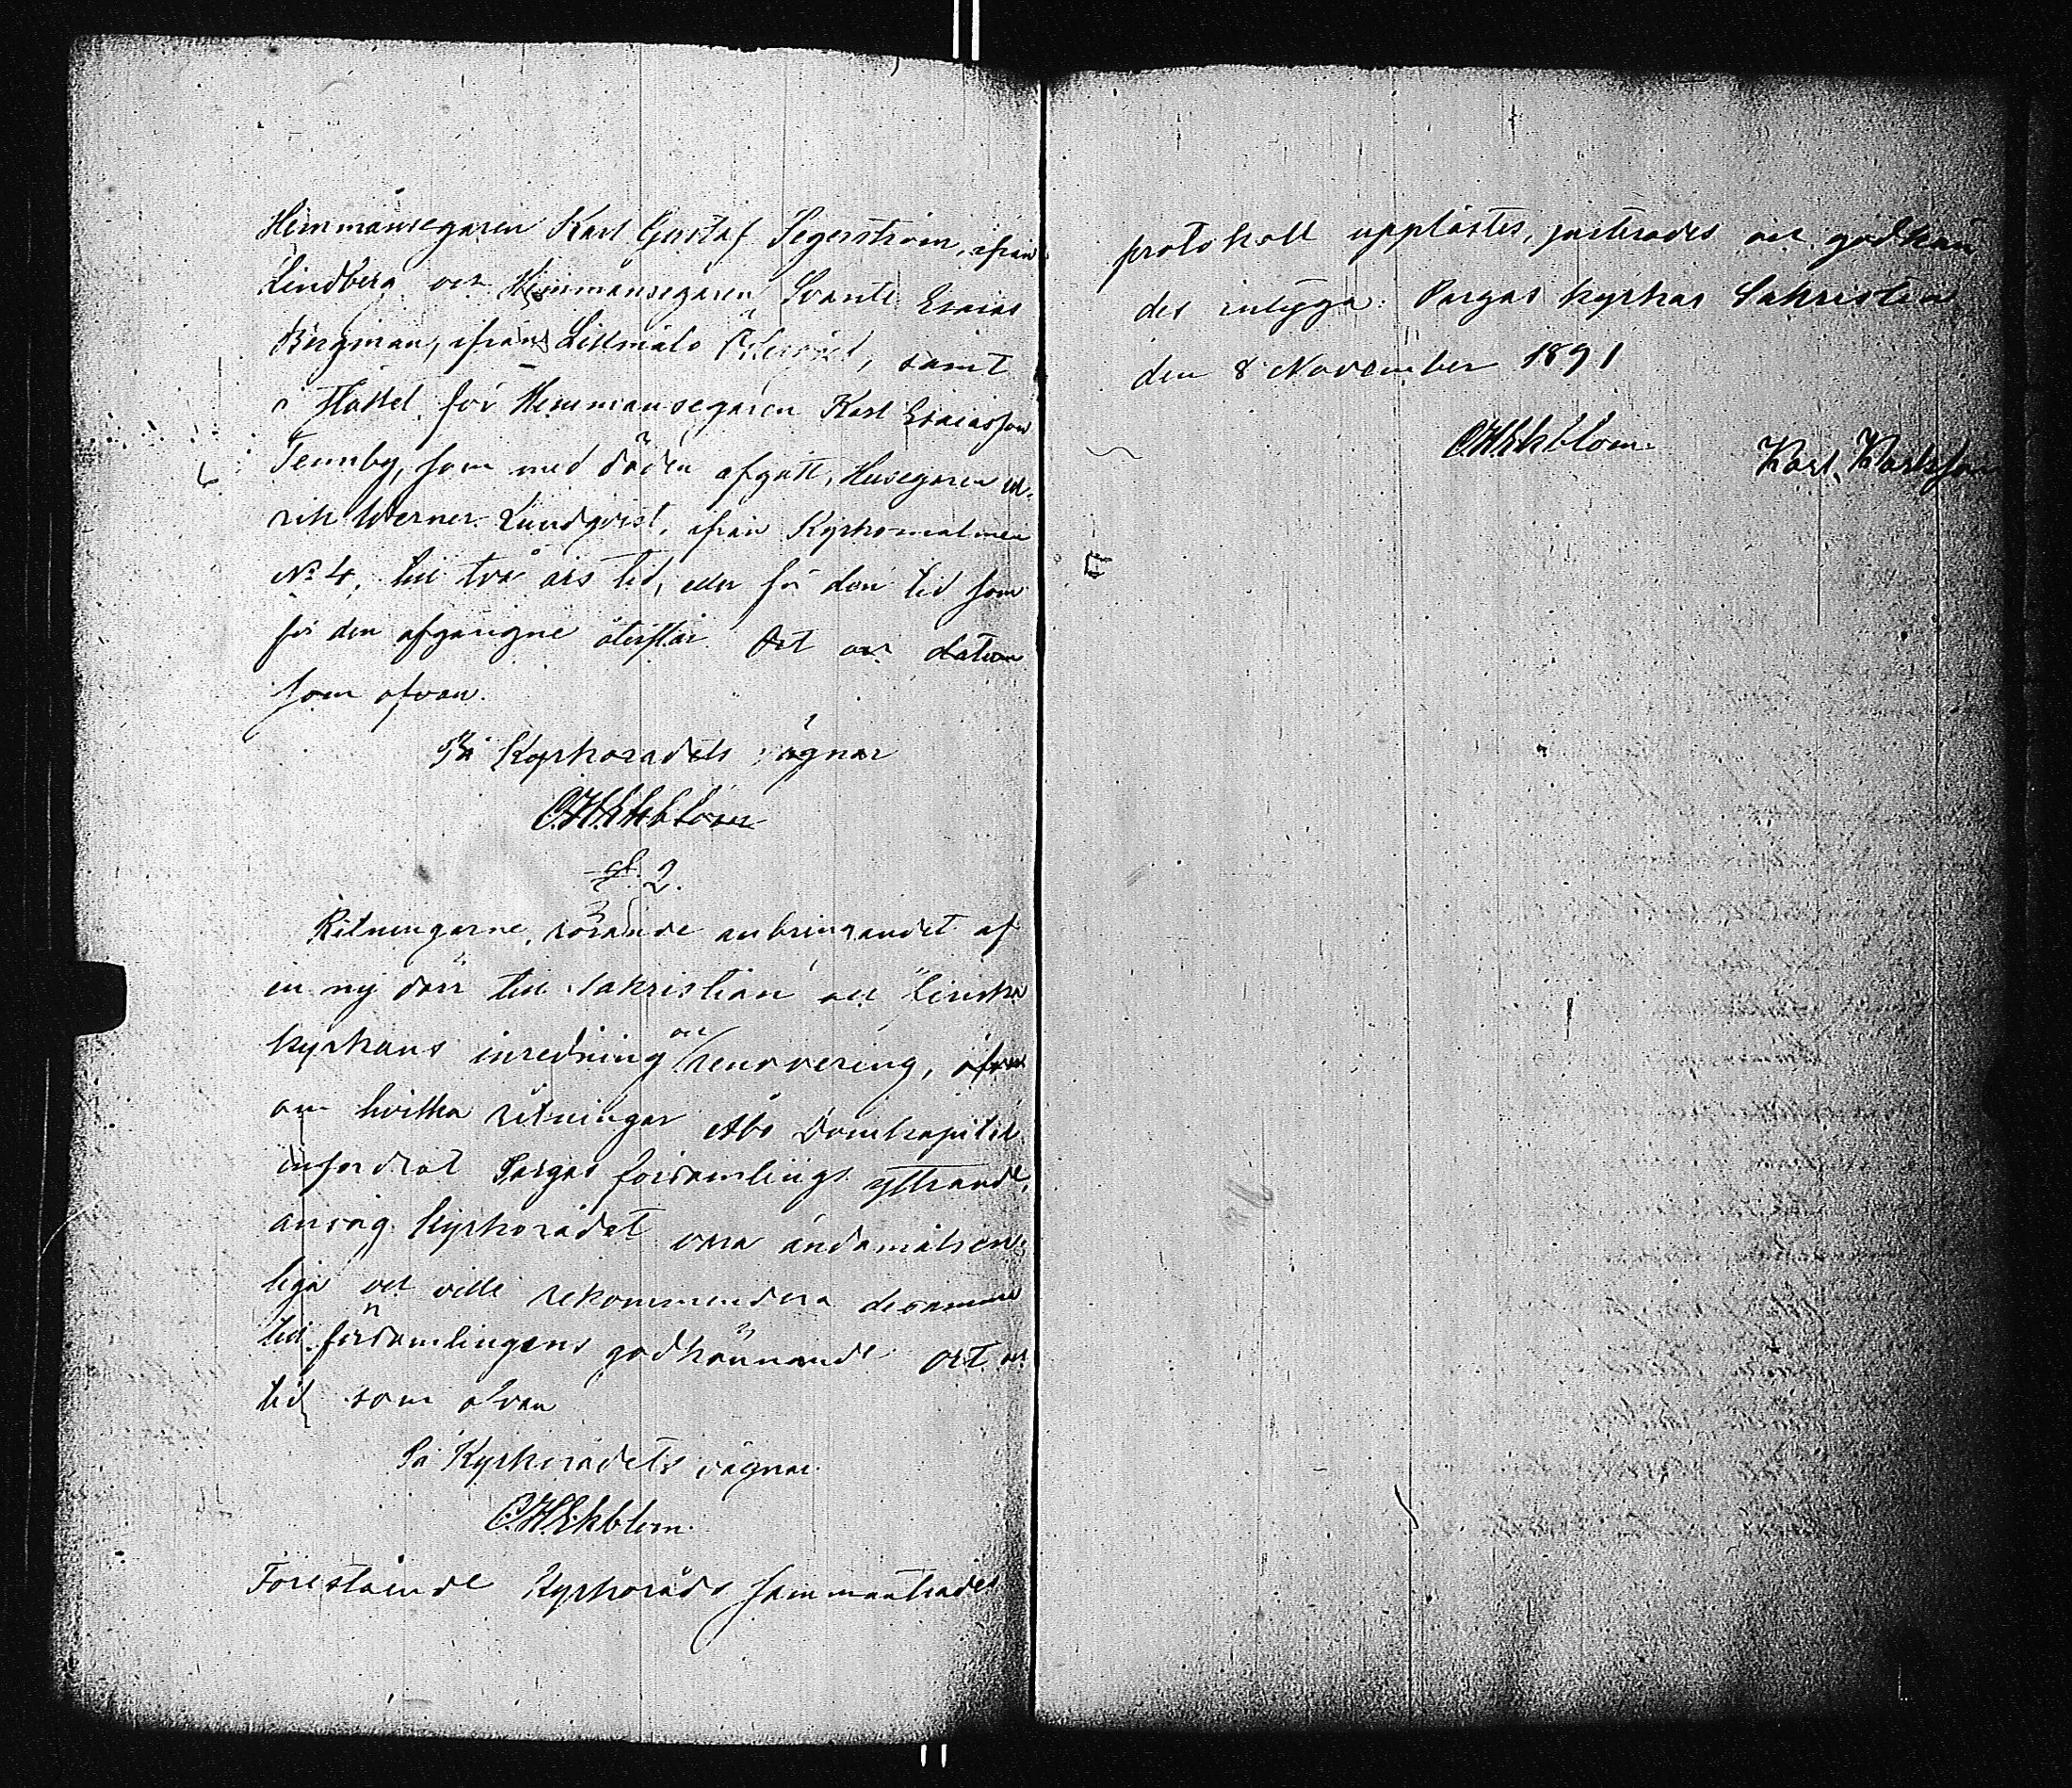 Hemmansegaren Karl Gustaf Segerström, ifrån
Lindberg och Hemmansegaren Svante Esaias
Bergman, ifrån Lillmälö samt
i stället för Hemmansegaren Karl Esaiasson
Tennby, som med döden afgått, Husegaren
Werner Lundqvist, ifrån Kyrkomalmen
No 4, till två års tid, eller för den tid som
för den afgångne återstår. Ort och datum
som ofvan.
På Kyrkorådets vägnar
C.H.Ekblom
§ 2.
Ritningarne, rörande anbringandet af
en ny dörr till sakristian och finska
kyrkans inredning och renovering, öfver
hvilka ritningar Åbo Domkapitel
infordrat Pargas församlings yttrande,
ansåg Kyrkorådet vara ändamålsen-
liga och ville rekommendera desamma
till församlingens godkännande. Ort och
tid som ofvan
På Kyrkorådets vägnar
C.H.Ekblom.
Förestående Kyrkoråds sammanträdes
protokoll upplästes, justerades och godkän
des intyga. Pargas kyrkas Sakristia
den 8 November 1891
C.H.Ekblom. Karl Karlsson